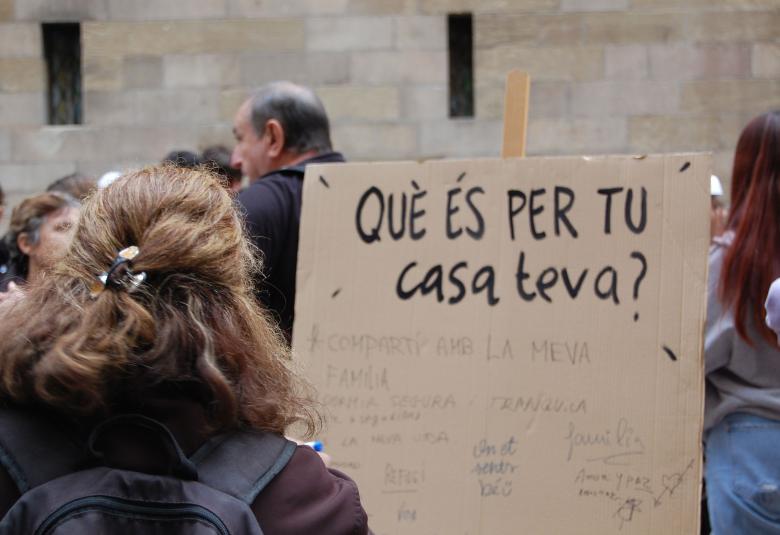 QUÈ ÉS PER TU
casa teva?
COMPARTÍ AMB LA MEVA
FAMÍLIA
DORMIR SEGURA I TRANQUILA
seguridad
LA MEVA VIDA
REFUGI
On et
sents
bé
família
Amor y paz